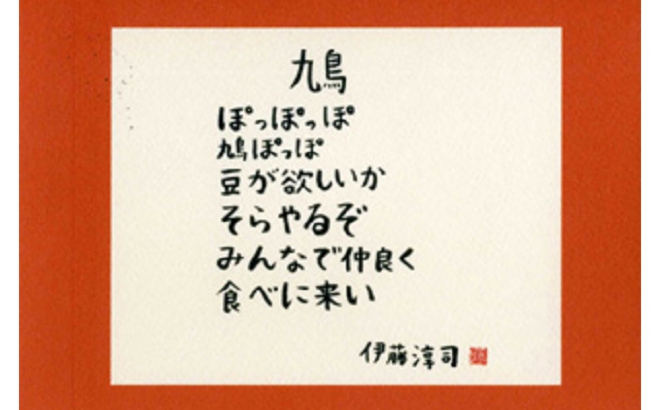 鳩
ぽっぽっぽ
鳩ぽっぽ
豆が欲しいか
そらやるぞ
みんなで仲良く
食べに来い
伊藤淳司